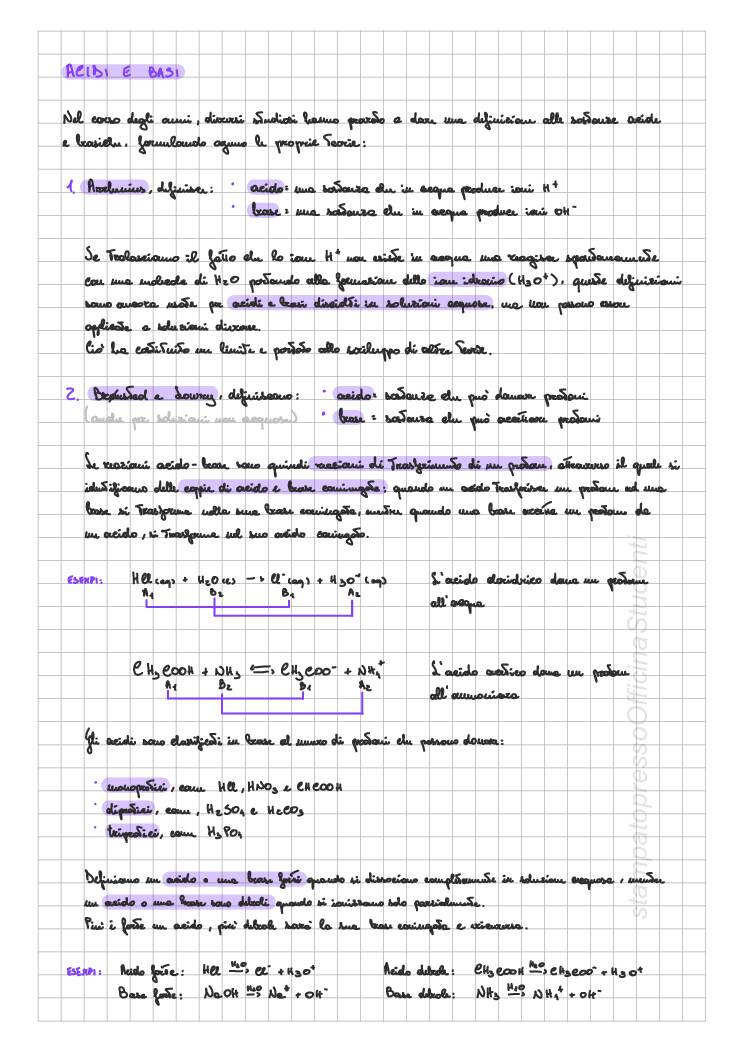 ACIDI E BASI
Nel corso degli anni, diversi studiosi hanno provato a dare una definizione alle sostanze acide
e basiche, formulando ognuno le proprie teorie:
1. Arrhenius, definisce: · acido: una sostanza che in acqua produce ioni H⁺
· base: una sostanza che in acqua produce ioni OH⁻
Se tralasciamo il fatto che lo ione H⁺ non esiste in acqua ma reagisce spontaneamente
con una molecola di H₂O portando alla formazione dello ione idronio (H₃O⁺), queste definizioni
sono ancora usate per acidi e basi disciolti in soluzioni acquose, ma non possono essere
applicate a soluzioni diverse.
Ciò ha costituito un limite e portato allo sviluppo di altre teorie.
2. Brønsted e Lowry, definiscono: · acido: sostanza che può donare protoni
(anche per soluzioni non acquose) · base: sostanza che può accettare protoni
Le reazioni acido-base sono quindi reazioni di trasferimento di un protone, attraverso il quale si
identificano delle coppie di acido e base coniugate: quando un acido trasferisce un protone ad una
base si trasforma nella sua base coniugata, mentre quando una base accetta un protone da
un acido, si trasforma nel suo acido coniugato.
ESEMPI: HCl (aq) + H₂O (l) → Cl⁻ (aq) + H₃O⁺ (aq) L'acido cloridrico dona un protone
A₁ B₂ B₁ A₂ all'acqua
CH₃COOH + NH₃ ⇌ CH₃COO⁻ + NH₄⁺ L'acido acetico dona un protone
A₁ B₂ B₁ A₂ all'ammoniaca
Gli acidi sono classificati in base al numero di protoni che possono donare:
· monoprotici, come HCl, HNO₃ e CHCOOH
· diprotici, come, H₂SO₄ e H₂CO₃
· triprotici, come H₃PO₄
Definiamo un acido o una base forti quando si dissociano completamente in soluzione acquosa, mentre
un acido o una base sono deboli quando si ionizzano solo parzialmente.
Più è forte un acido, più debole sarà la sua base coniugata e viceversa.
ESEMPI: Acido forte: HCl H₂O→ Cl⁻ + H₃O⁺ Acido debole: CH₃COOH H₂O→ CH₃COO⁻ + H₃O⁺
Base forte: NaOH H₂O→ Na⁺ + OH⁻ Base debole: NH₃ H₂O→ NH₄⁺ + OH⁻
stampatopressoOfficinaStudenti